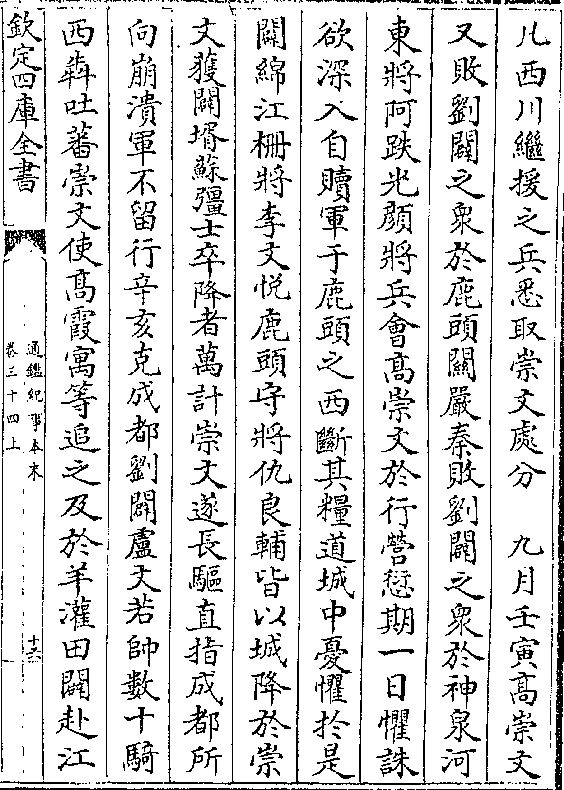 凡西川繼援之兵悉取崇文處分　九月壬寅高崇文
又敗劉闢之衆於鹿頭關嚴秦敗劉闢之衆於神泉河
東將阿跌光顔將兵會高崇文於行營愆期一日懼誅
欲深入自贖軍于鹿頭之西斷其糧道城中憂懼於是
闢綿江栅將李文悦鹿頭守將仇良輔皆以城降於崇
文獲闢壻蘇彊士卒降者萬計崇文遂長驅直指成都所
向崩潰軍不留行辛亥克成都劉闢盧文若帥數十騎
西犇吐蕃崇文使高霞寓等追之及於羊灌田闢赴江
欽定四庫全書
通鑑紀事本末
卷三十四上